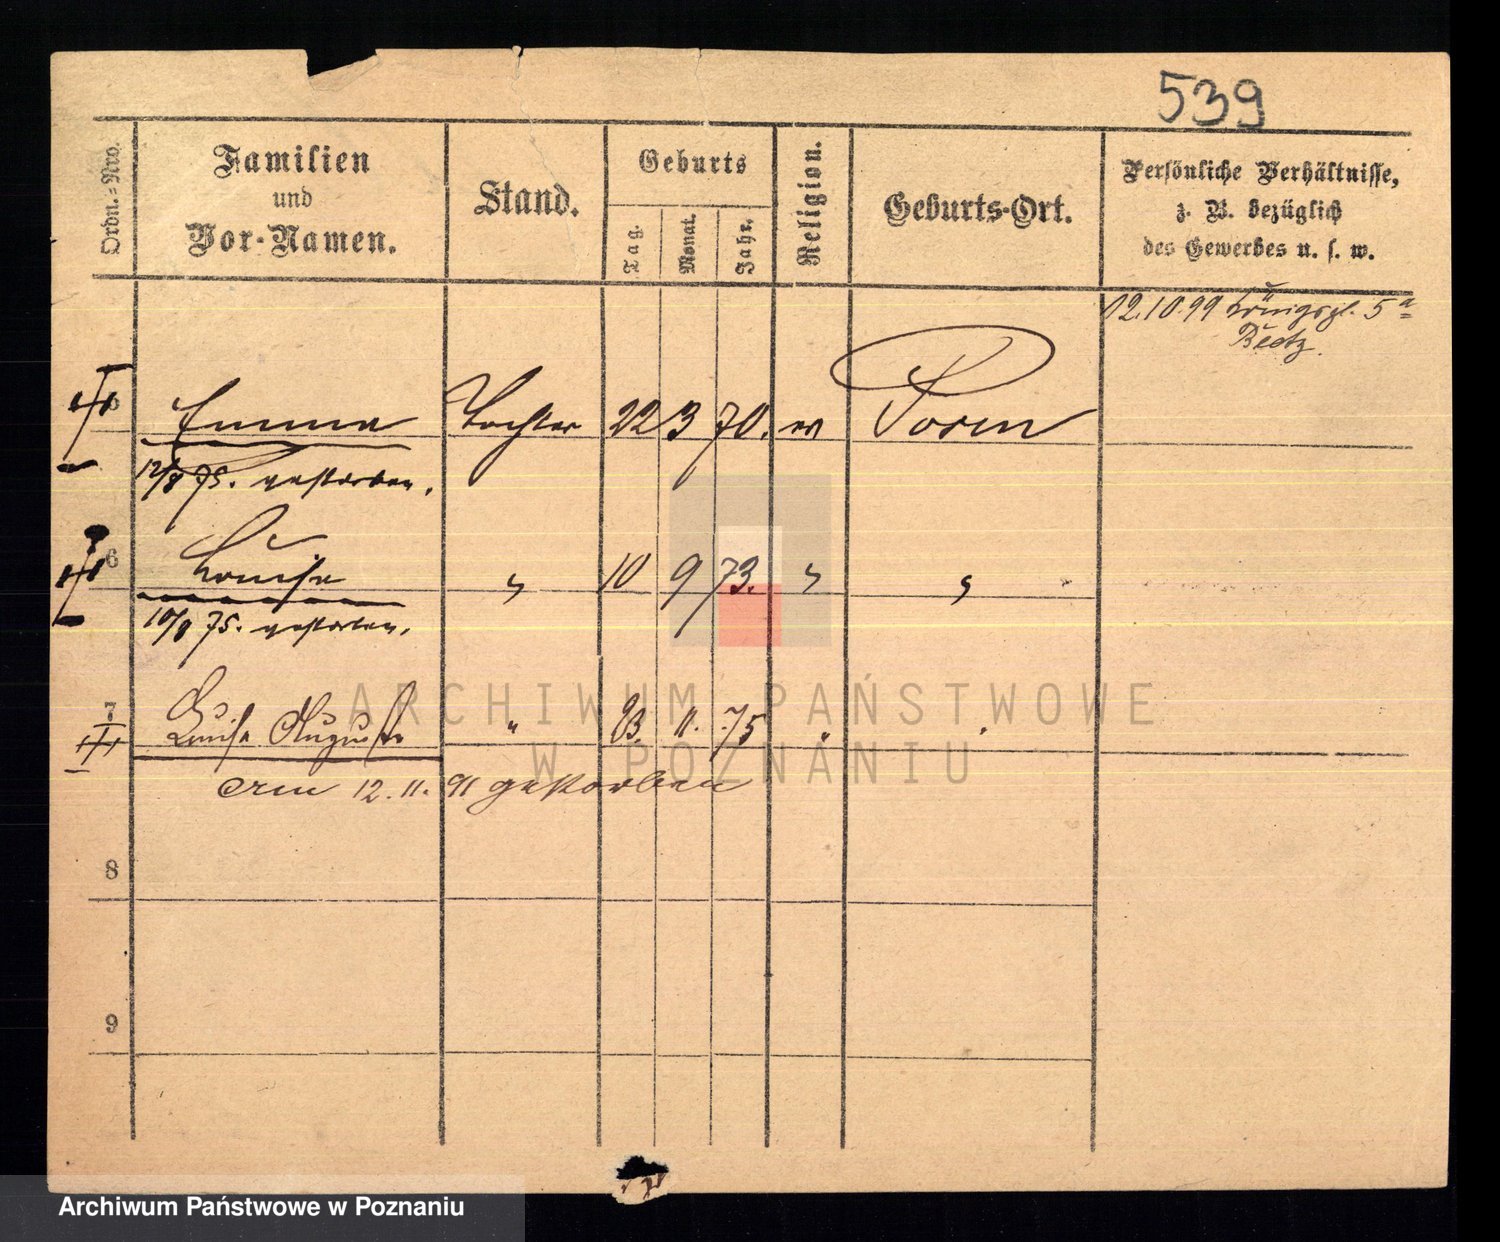 539
Ordn.=Nro.
Familien
und
Vor-Namen.
Stand.
Geburts
Tag.
Monat.
Jahr.
Religion.
Geburts-Ort.
Persönliche Verhältnisse,
z. B. bezüglich
des Gewerbes u. s. w.
12.10.99 Königspl. 5a
5 Emma Tochter 22 3 70. ev Posen
12/8 75. gestorben.
6 Louise " 10 9 73. " "
10/8 75. gestorben.
7 Luise Auguste " 11. 75 " "
am 12. 11. 91 gestorben
8
9
ARCHIWUM PAŃSTWOWE
W POZNANIU
Archiwum Państwowe w Poznaniu